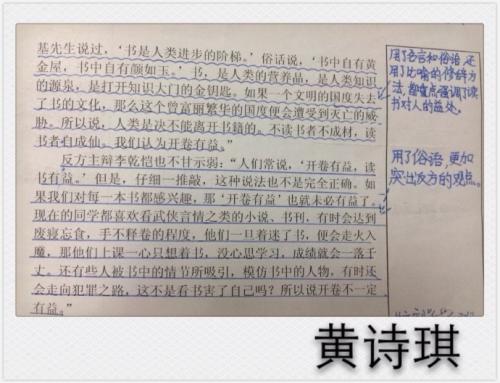 基先生说过，‘书是人类进步的阶梯。’俗话说，‘书中自有黄
金屋，书中自有颜如玉。’书，是人类的营养品，是人类知识
的源泉，是打开知识大门的金钥匙。如果一个文明的国度失去
了书的文化，那么这个曾富丽繁华的国度便会遭受到灭亡的威
胁。所以说，人类是决不能离开书籍的。不读书者不成材，读
书者自成仙。我们认为开卷有益。”
反方主辩李乾恺也不甘示弱：“人们常说，‘开卷有益，读
书有益。’但是，仔细一推敲，这种说法也不是完全正确。如
果我们对每一本书都感兴趣，那‘开卷有益’也就未必有益了。
现在的同学都喜欢看武侠言情之类的小说、书刊，有时会达到
废寝忘食，手不释卷的程度，他们一旦着迷了书，便会走火入
魔，那他们上课一心只想着书，没心思学习，成绩就会一落千
丈。还有些人被书中的情节所吸引，模仿书中的人物，有时还
会走向犯罪之路，这不是看书害了自己吗？所以说开卷不一定
有益。”
用了名言和俗语，还
用了比喻的修辞方
法，着重点强调了读
书对人的益处。
用了俗语，更加
突出反方的观点。
黄诗琪